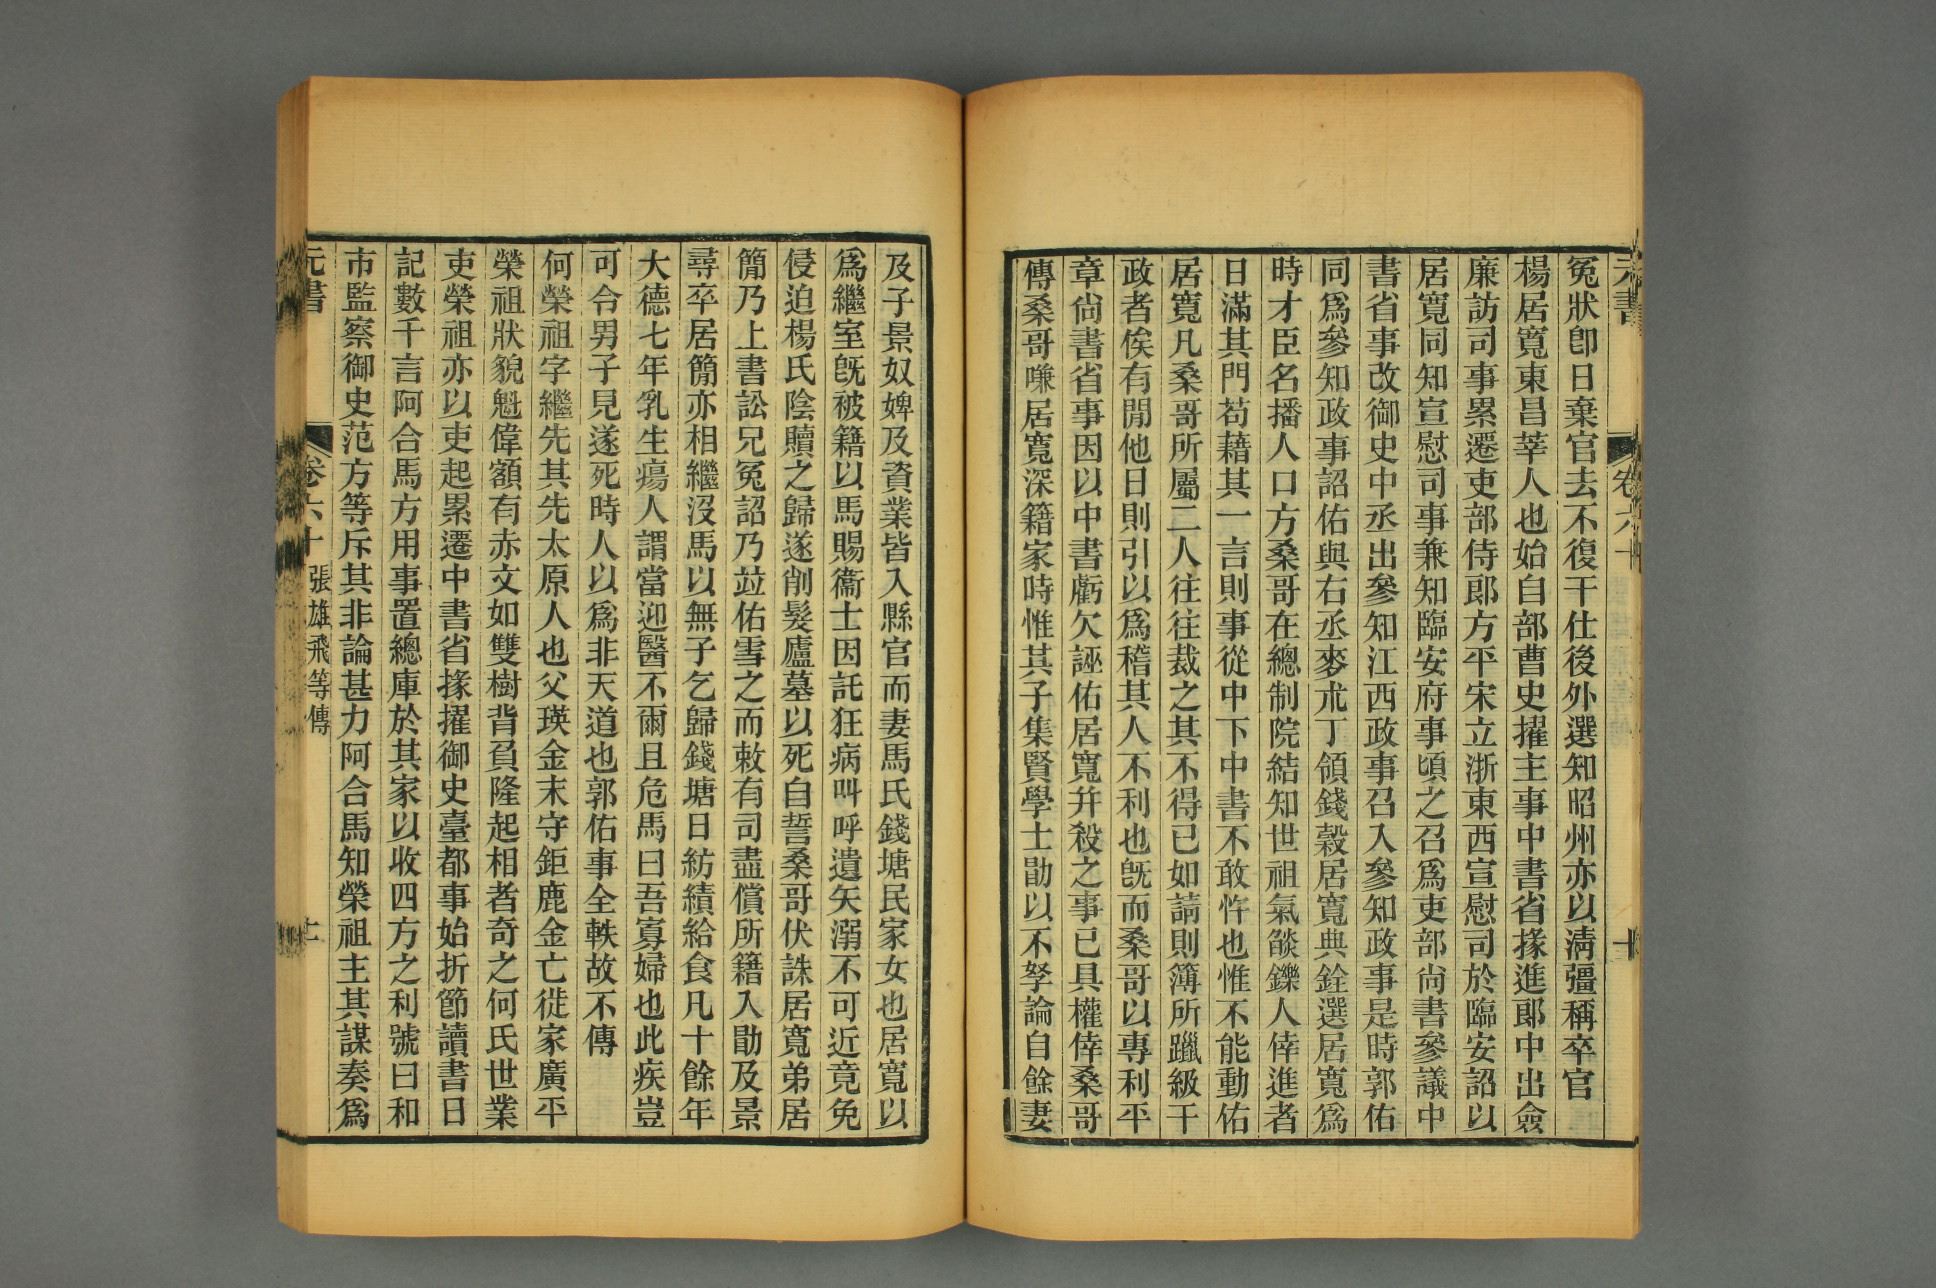 元書
卷六十
冤狀卽日棄官去不復干仕後外選知昭州亦以淸彊稱卒官
楊居寬東昌莘人也始自部曹史擢主事中書省掾進郎中出僉
廉訪司事累遷吏部侍郎方平宋立浙東西宣慰司於臨安詔以
居寬同知宣慰司事兼知臨安府事頃之召爲吏部尙書參議中
書省事改御史中丞出參知江西政事召入參知政事是時郭佑
同爲參知政事詔佑與右丞麥朮丁領錢穀居寬典銓選居寬爲
時才臣名播人口方桑哥在總制院結知世祖氣燄鑠人倖進者
日滿其門苟藉其一言則事從中下中書不敢忤也惟不能動佑
居寬凡桑哥所屬二人往往裁之其不得已如請則簿所躐級干
政者俟有閒他日則引以爲稽其人不利也旣而桑哥以專利平
章尙書省事因以中書虧欠誣佑居寬幷殺之事已具權倖桑哥
傳桑哥嗛居寬深籍家時惟其子集賢學士勛以不孥論自餘妻
及子景奴婢及資業皆入縣官而妻馬氏錢塘民家女也居寬以
爲繼室旣被籍以馬賜衞士因託狂病叫呼遺矢溺不可近竟免
侵迫楊氏陰贖之歸遂削髮廬墓以死自誓桑哥伏誅居寬弟居
簡乃上書訟兄冤詔乃竝佑雪之而敕有司盡償所籍入勛及景
尋卒居簡亦相繼沒馬以無子乞歸錢塘日紡績給食凡十餘年
大德七年乳生瘍人謂當迎醫不爾且危馬曰吾寡婦也此疾豈
可令男子見遂死時人以爲非天道也郭佑事全軼故不傳
何榮祖字繼先其先太原人也父瑛金末守鉅鹿金亡徙家廣平
榮祖狀貌魁偉額有赤文如雙樹背負隆起相者奇之何氏世業
吏榮祖亦以吏起累遷中書省掾擢御史臺都事始折節讀書日
記數千言阿合馬方用事置總庫於其家以收四方之利號曰和
市監察御史范方等斥其非論甚力阿合馬知榮祖主其謀奏爲
元書
卷六十
張雄飛等傳